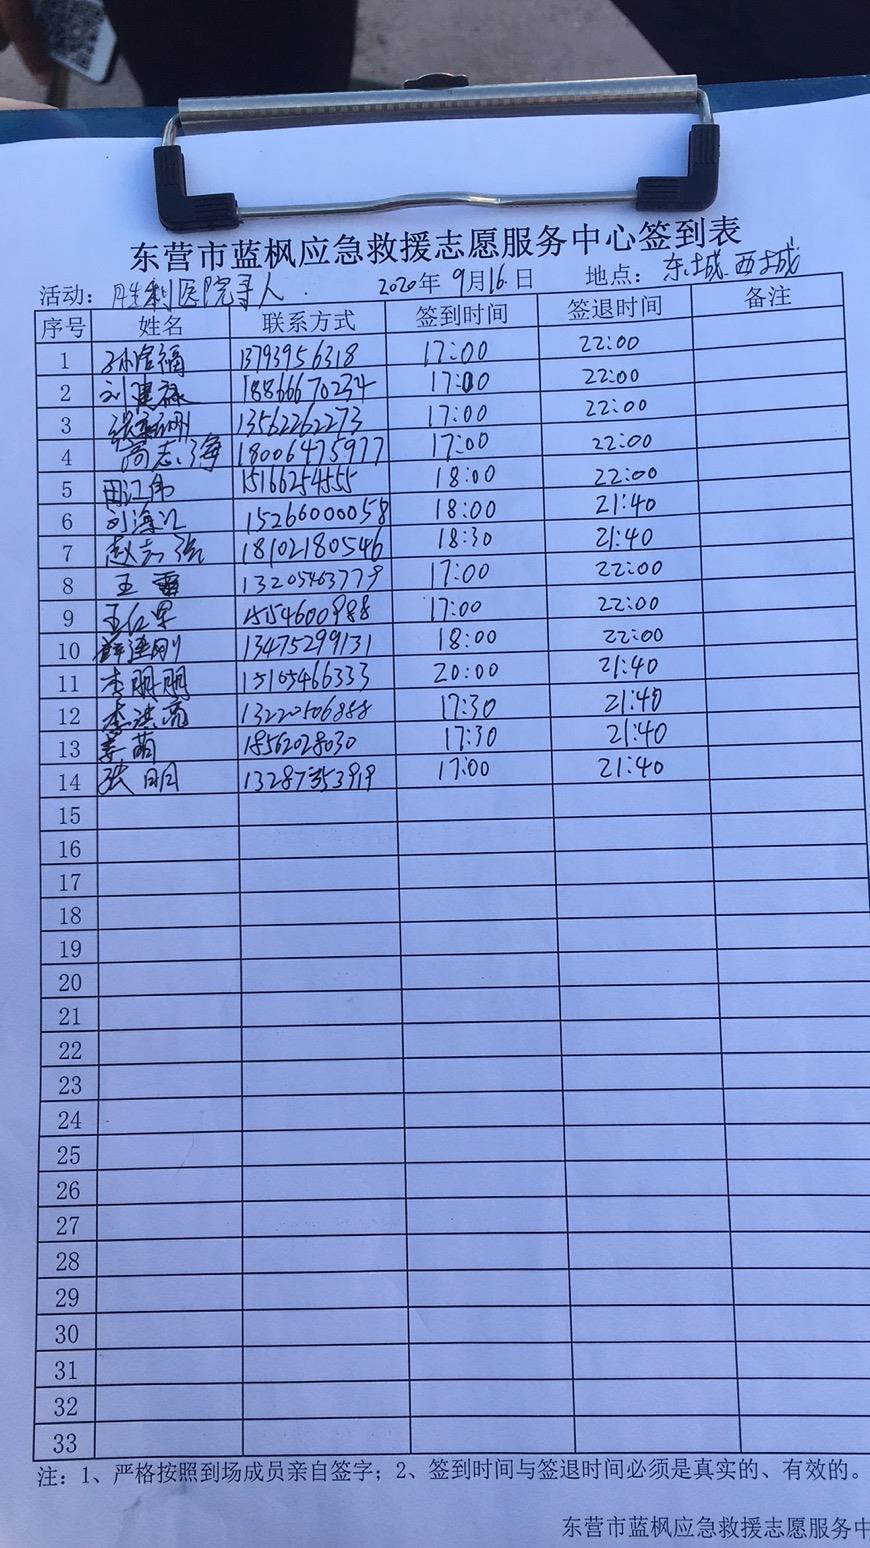 东营市蓝枫应急救援志愿服务中心签到表
活动：胜利医院寻人 2020年 9月16日 地点：东城.西城
序号 姓名 联系方式 签到时间 签退时间 备注
1 13793956318 17:00 22:00
2 刘建禄 18866670234 17:00 22:00
3 13562262273 17:00 22:00
4 高志净 18006475977 17:00 22:00
5 田江伟 15166254555 18:00 22:00
6 刘海江 15266000058 18:00 21:40
7 赵志强 18102180546 18:30 21:40
8 王雷 13205463779 17:00 22:00
9 王红军 15154600988 17:00 22:00
10 薛连刚 13475299131 18:00 22:00
11 李朋朋 15105466333 20:00 21:40
12 李洪亮 13220506888 17:30 21:40
13 姜萌 18562028030 17:30 21:40
14 张明 13287353919 17:00 21:40
15
16
17
18
19
20
21
22
23
24
25
26
27
28
29
30
31
32
33
注：1、严格按照到场成员亲自签字；2、签到时间与签退时间必须是真实的、有效的。
东营市蓝枫应急救援志愿服务中